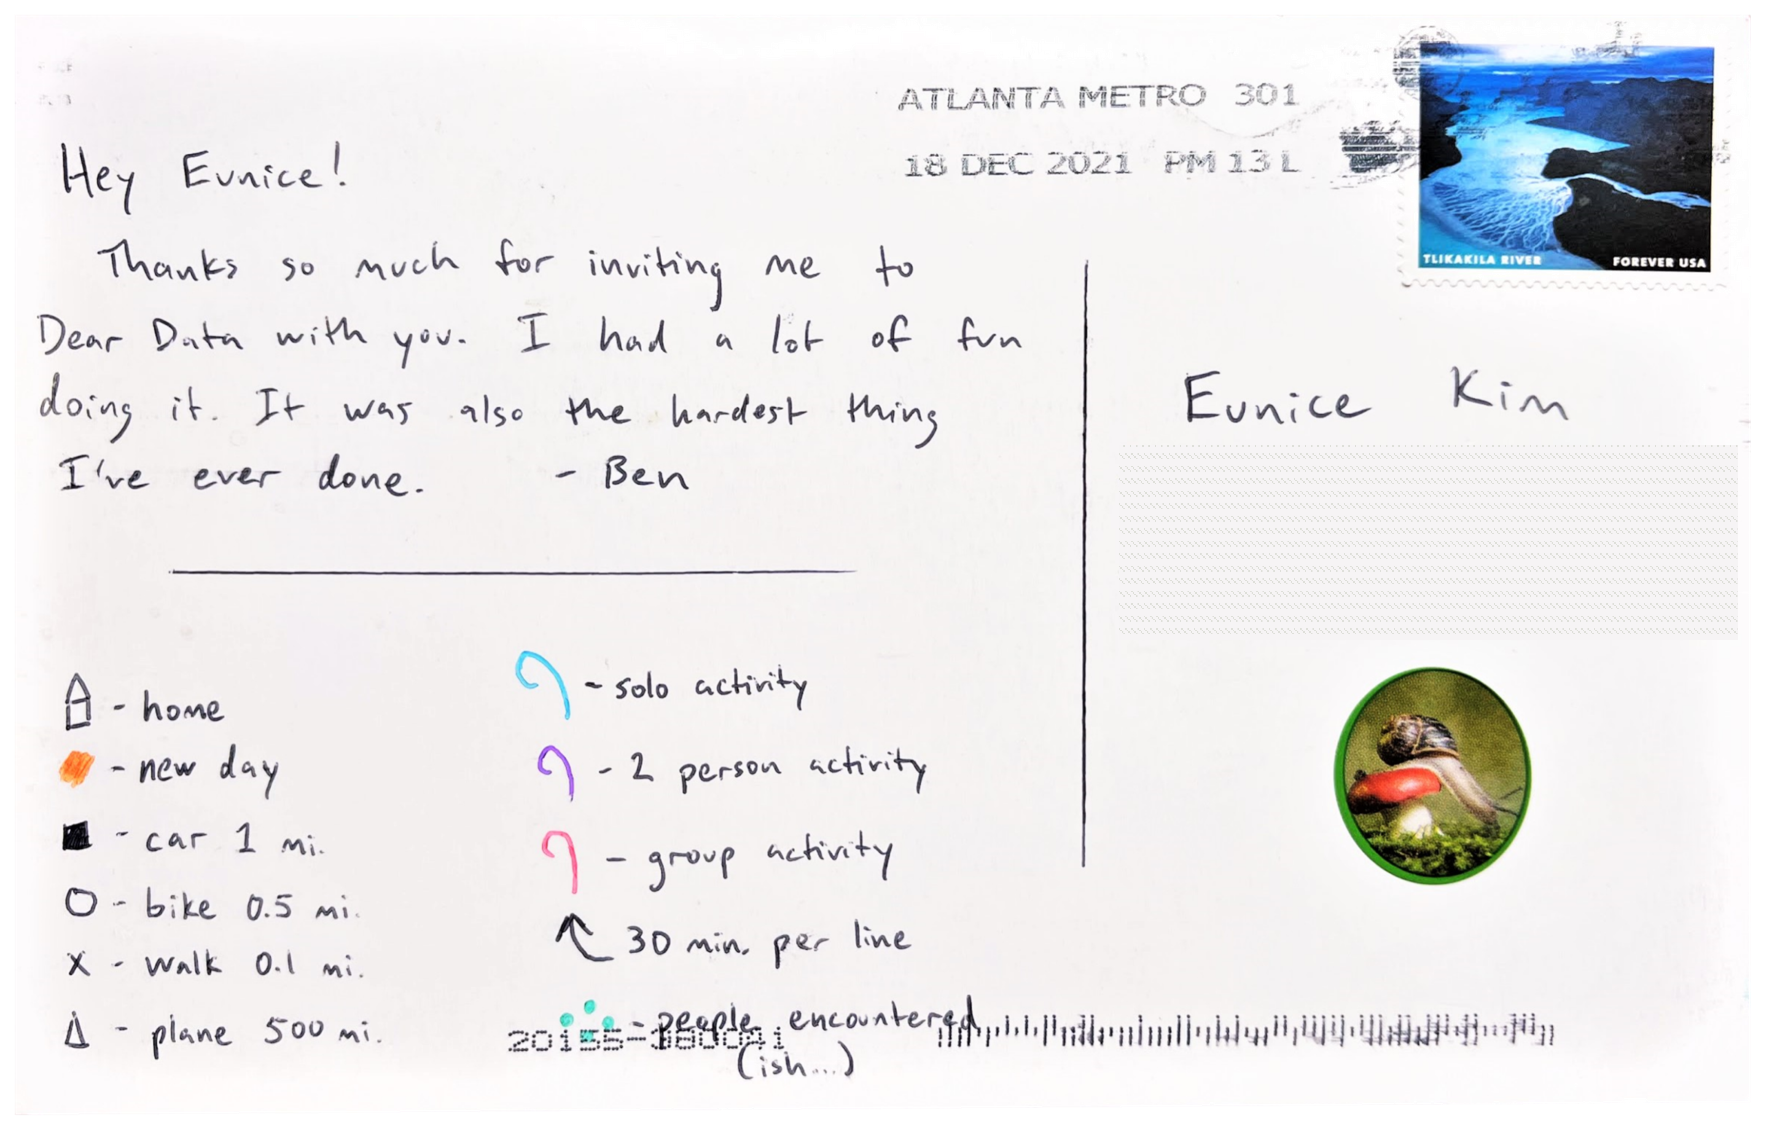 ATLANTA METRO 301
18 DEC 2021 PM 13 L
TLIKAKILA RIVER FOREVER USA
Hey Eunice!
Thanks so much for inviting me to
Dear Data with you. I had a lot of fun
doing it. It was also the hardest thing
I've ever done. - Ben
Eunice Kim
- home
- new day
- car 1 mi.
- bike 0.5 mi.
x - walk 0.1 mi.
- plane 500 mi.
- solo activity
- 2 person activity
- group activity
30 min. per line
- people encountered
(ish...)